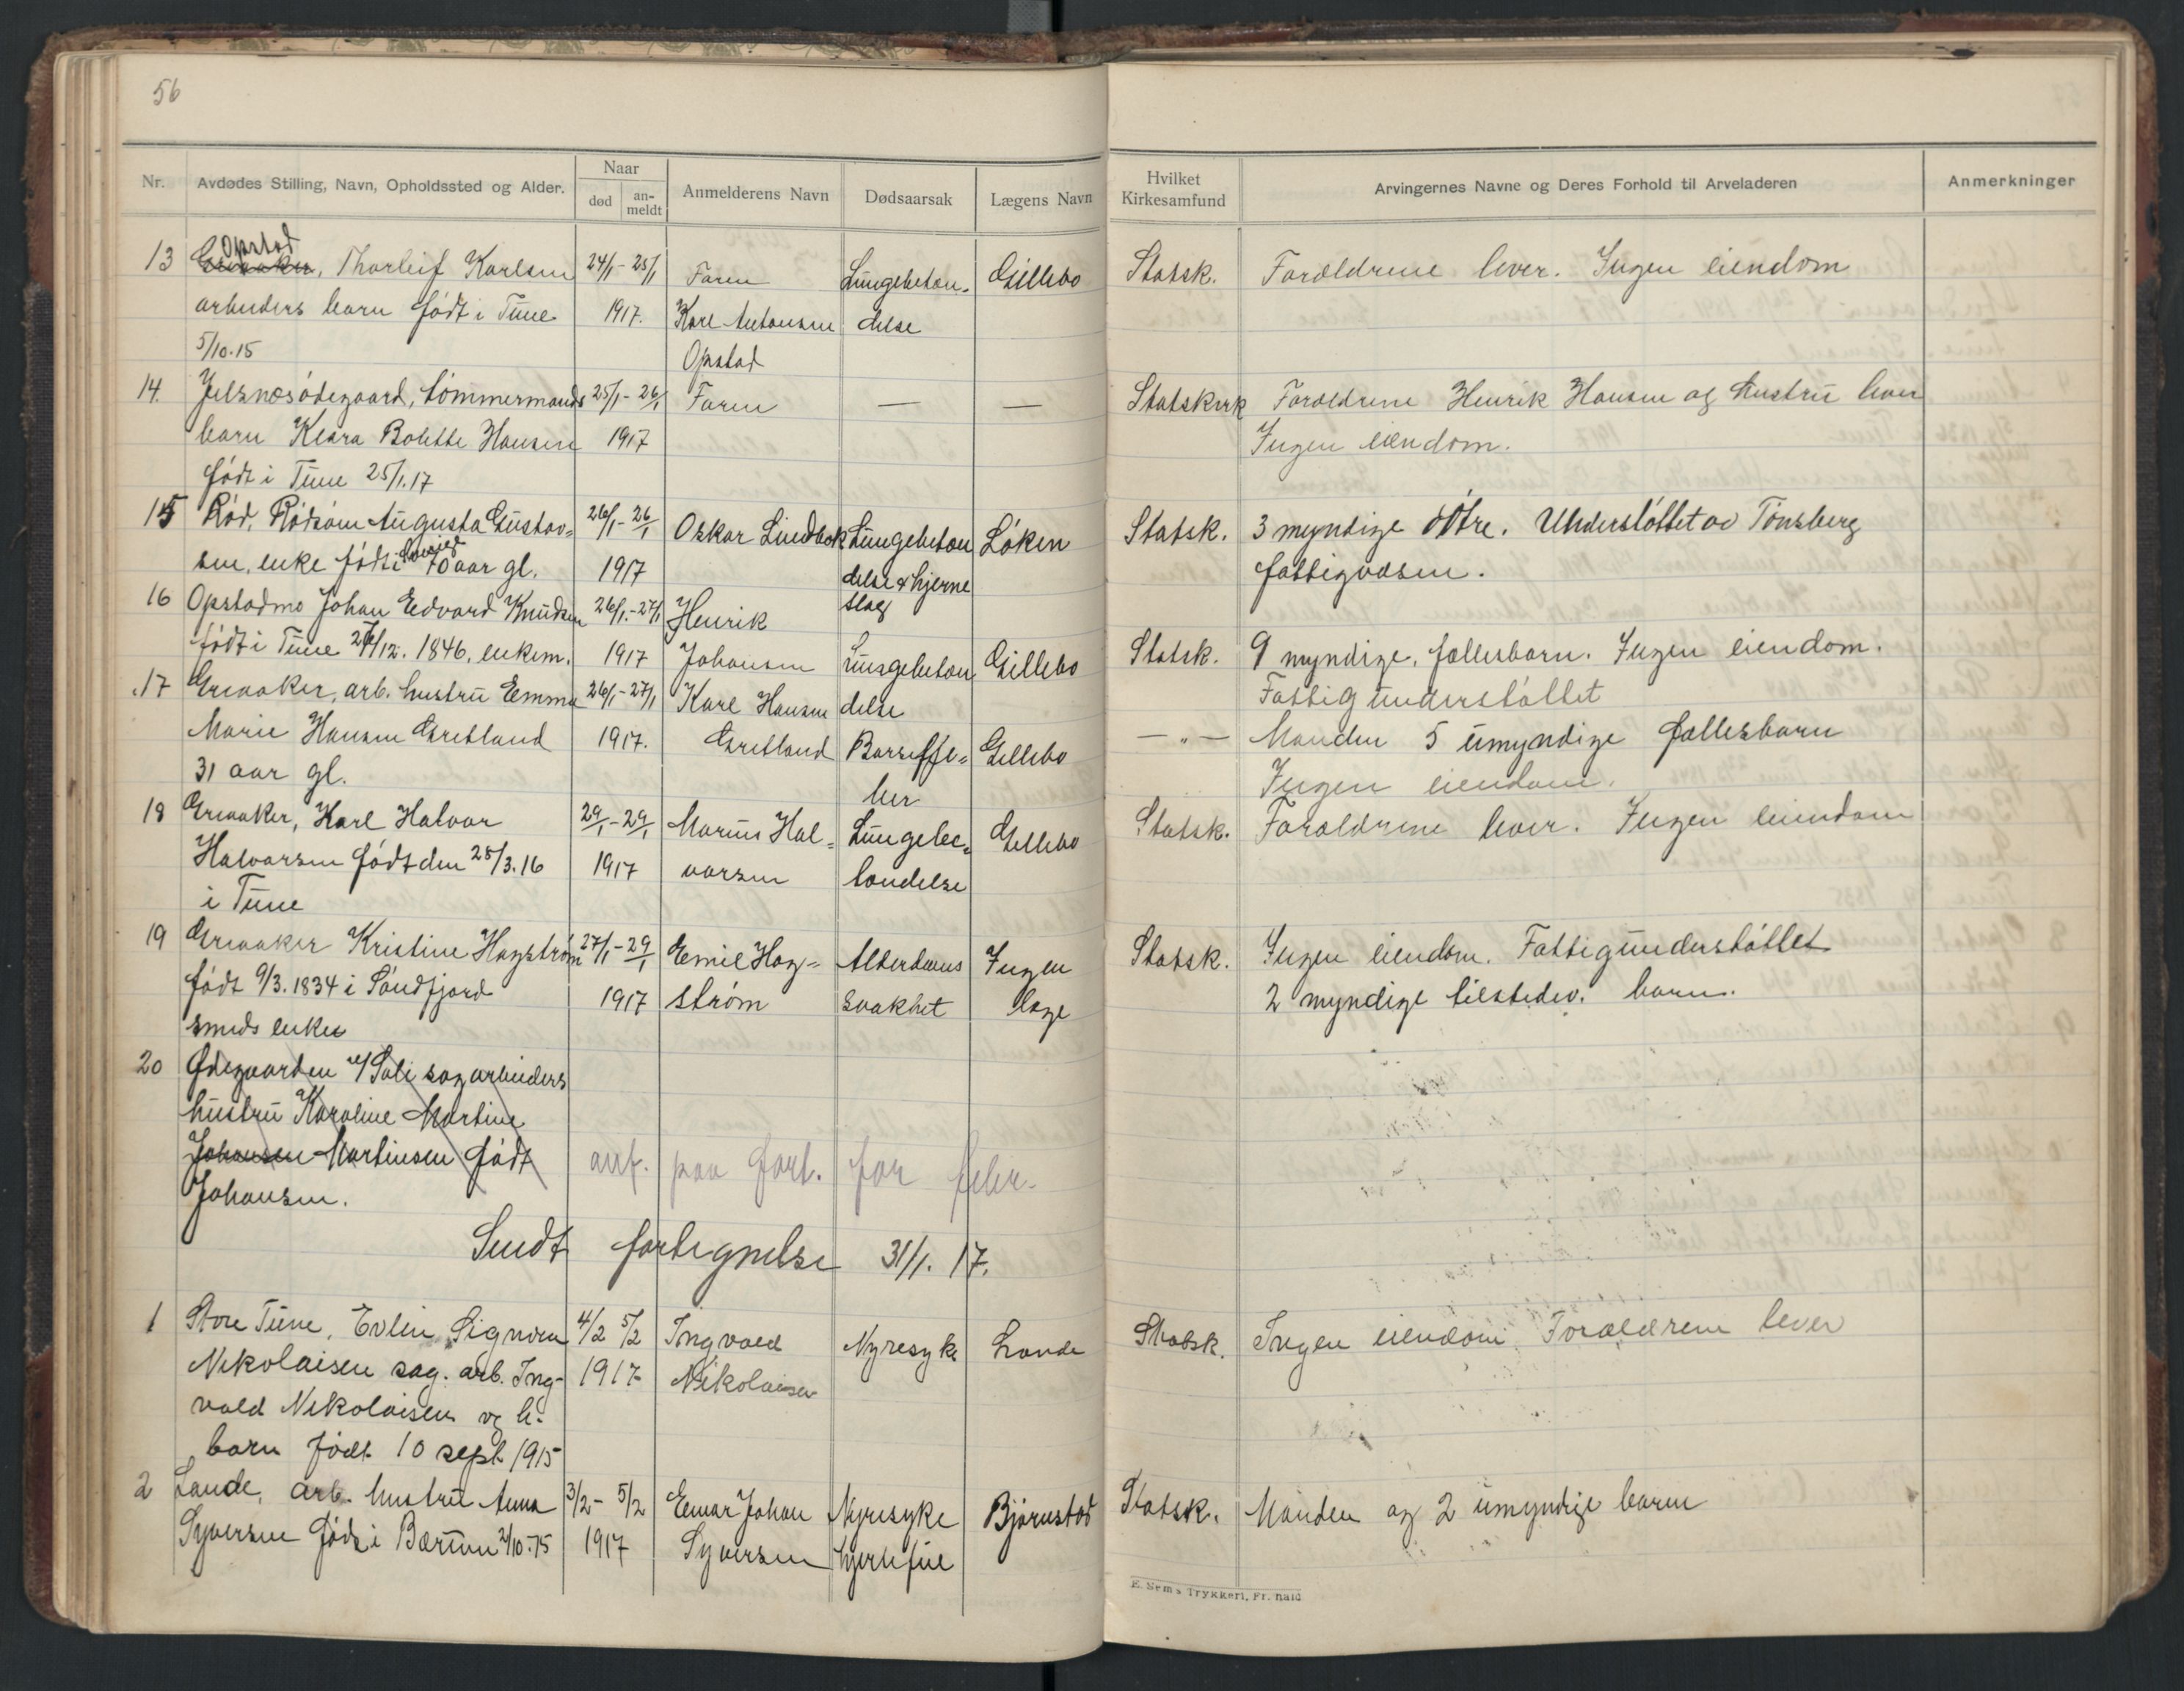 56
Nr.
Avdødes Stilling, Navn, Opholdssted og Alder.
Naar
død
an-
meldt
Anmelderens Navn
Dødsaarsak
Lægens Navn
Hvilket
Kirkesamfund
Arvingernes Navne og Deres Forhold til Arveladeren
Anmerkninger
Opstad
13 Greaaker, Thorleif Karlsen 24/1 - 25/1 Faren Lungebetæn- Gillebo Statsk. Forældrene lever. Ingen eiendom
arbeiders barn født i Tune 1917. Karl Antonsen delse
5/10.15 Opstad
14. Jelsnæsødegaard, tømmermands 25/1 - 26/1 Faren — — Statskirk Forældrene Henrik Hansen og hustru lever
barn Klara Bolette Hansen 1917 Ingen eiendom.
født i Tune 25/1.17
15 Rød, Augusta Gustav- 26/1 - 26/1 Oskar Lindbæk Lungebetæn Løken Statsk. 3 myndige døtre. Understøttet av Tønsberg
sen, enke født i 70 aar gl. 1917 delse & hjerne fattigvæsen.
slag
16 Opstadmo Johan Edvard Knudsen 26/1. - 27/1 Henrik
født i Tune 27/12. 1846, enkem. 1917 Johansen Lungebetæn Gillebo Statsk. 9 myndige, fællesbarn. Ingen eiendom.
delse Fattigunderstøttet
17 Greaaker, arb. hustru Emma 26/1 - 27/1 Karl Hansen
Marie Hansen Gretland 1917. Gretland Barselfe- Gillebo — „ — Manden 5 umyndige fællesbarn
31 aar gl. ber Ingen eiendom.
18 Greaaker, Karl Halvor 29/1 - 29/1 Marius Hal- Lungebe- Gillebo Statsk. Forældrene lever. Ingen eiendom
Halvorsen født den 28/3.16 1917 vorsen tændelse
i Tune
19 Greaaker Kristine Hagstrøm 27/1 - 29/1 Emil Hag- Alderdoms Ingen Statsk. Ingen eiendom. Fattigunderstøttet
født 9/3. 1834 i Søndfjord 1917 strøm svakhet læge 2 myndige tilstedev. barn.
smeds enke
20 Ødegaarden u/ Soli sagarbeiders
hustru Karoline Martine
Johansen Martinsen født anf. paa fort. for febr.
Johansen.
Sendt fortegnelse 31/1. 17.
1 Store Tune, Evlin Signora 4/2 5/2 Ingvald Nyresyke Lande Statsk. Ingen eiendom. Forældrene lever
Nikolaisen sag. arb. Ing- 1917 Nikolaisen
vald Nikolaisen og h.
barn født 10 sept 1915
2 Lande, arb. hustru Anna 3/2 - 5/2 Einar Johan Nyresyke Bjørnstad Statsk. Manden og 2 umyndige barn
Syversen født i Bærum 2/10.75 1917 Syversen hjertefeil
E. Sem's Trykkeri, Fr. hald